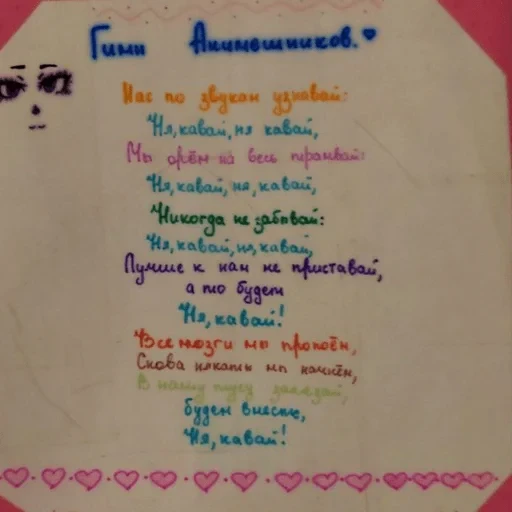 Гимн Анимешников.
Нас по звукам узнавай:
Ня, кавай, ня кавай,
Мы орём на весь трамвай:
Ня, кавай, ня, кавай,
Никогда не забывай:
Ня, кавай, ня, кавай,
Лучше к нам не приставай,
а то будет
Ня, кавай!
Все мозги мы пропоём,
Снова някать мы начнём,
В нашу тусу залезай,
будем вместе,
Ня, кавай!